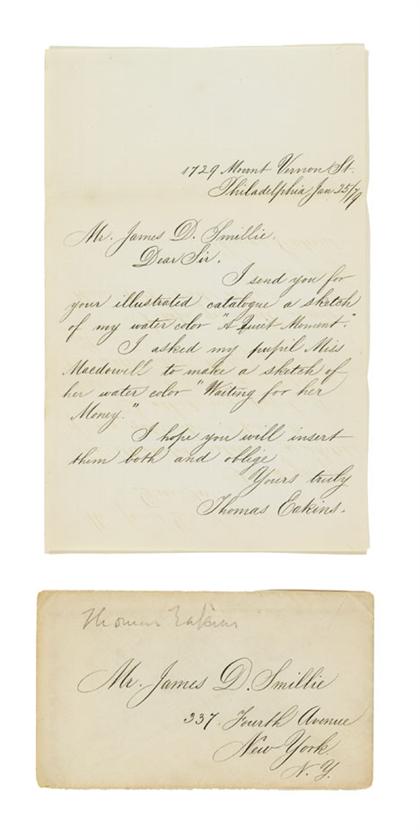 1729 Mount Vernon St.
Philadelphia Jan 25/79
Mr. James D. Smillie.
Dear Sir.
I send you for
your illustrated catalogue a sketch
of my water color "A Quiet Moment."
I asked my pupil Miss
Macdowell to make a sketch of
her water color "Waiting for her
Money."
I hope you will insert
them both and oblige
Yours truly
Thomas Eakins.
Thomas Eakins
Mr. James D. Smillie
337 Fourth Avenue
New York
N.Y.